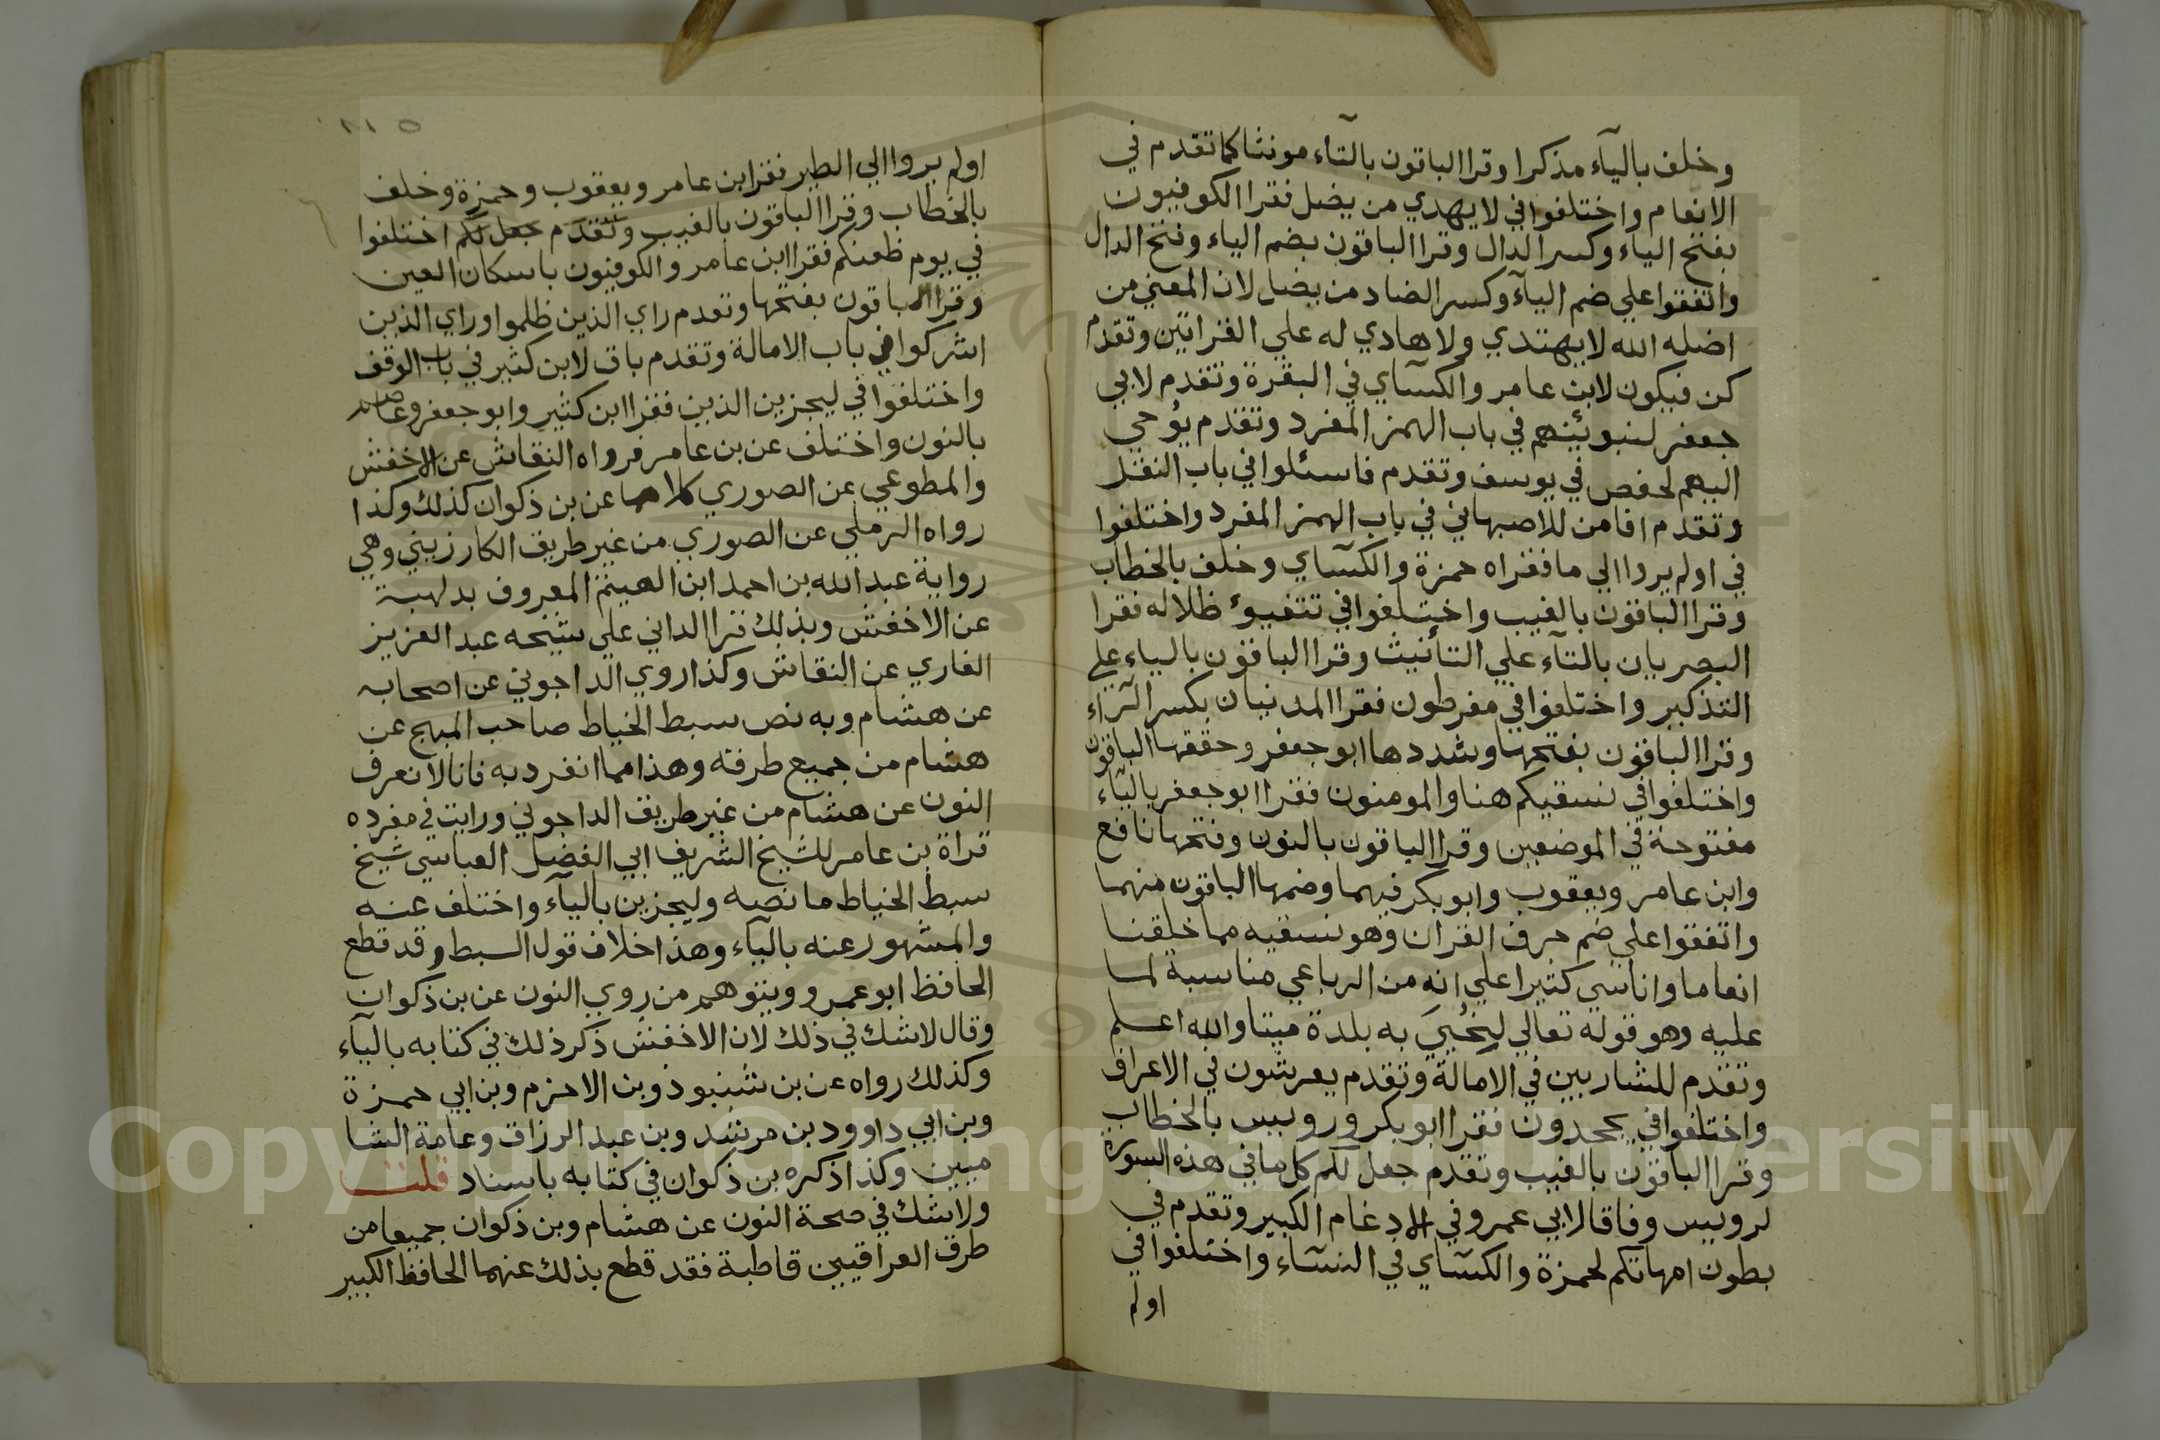 وخلف بالياء مذكرا وقرا الباقون بالتاء مونثا كما تقدم في
الانعام واختلفوا في لا يهدي من يضل فقرا الكوفيون
بفتح الياء وكسر الدال وقرا الباقون بضم الياء وفتح الدال
واتفقوا علي ضم الياء وكسر الضاد من يضل لان المعني من
اضله الله لا يهتدي ولا هادي له علي القراتين وتقدم
كن فيكون لابن عامر والكسآي في البقرة وتقدم لابي
جعفر لنبوئنهم في باب الهمز المفرد وتقدم يُوحي
اليهم لحفص في يوسف وتقدم فاسئلوا في باب النقل
وتقدم افامن للاصبهاني في باب الهمز المفرد واختلفوا
في اولم يروا الي ما فقراه حمزة والكسآي وخلف بالخطاب
وقرا الباقون بالغيب واختلفوا في تتفيوء ظلاله فقرا
البصريان بالتآء علي التأنيث وقرا الباقون بالياء علي
التذكير واختلفوا في مفرطون فقرا المدنيان بكسر الرآء
وقرا الباقون بفتحها وشددها ابو جعفر وخففها الباقون
واختلفوا في نسقيكم هنا والمومنون فقرا ابو جعفر بالتآء
مفتوحة في الموضعين وقرا الباقون بالنون وفتحها نافع
وابن عامر ويعقوب وابو بكر فيهما وضمها الباقون منهما
واتفقوا علي ضم حرف القران وهو نسقيه مما خلقنا
انعاما واناسي كثيرا علي انه من الرباعي مناسبة لما
عليه وهو قوله تعالي ليُحْيِيَ به بلدة ميتا والله اعلم
وتقدم للشاربين في الامالة وتقدم يعرشون في الاعراف
واختلفوا في يجحدون فقرا ابو بكر ورويس بالخطاب
وقرا الباقون بالغيب وتقدم جعل لكم كل ما في هذه السورة
لرويس وفاقا لابي عمرو في الادغام الكبير وتقدم في
بطون امهاتكم لحمزة والكسآي في النسآء واختلفوا في
اولم
٢١٥
اولم يروا الي الطير فقرا ابن عامر ويعقوب وحمزة وخلف
بالخطاب وقرا الباقون بالغيب وتقدم جعل لكم اختلفوا
في يوم ظعنكم فقرا ابن عامر والكوفيون باسكان العين
وقرا الباقون بفتحها وتقدم راي الذين ظلموا وراي الذين
اشركوا في باب الامالة وتقدم باق لابن كثير في باب الوقف
واختلفوا في ليجزين الذين فقرا ابن كثير وابو جعفر وعاصم
بالنون واختلف عن بن عامر فرواه النقاش عن الاخفش
والمطوعي عن الصوري كلاهما عن بن ذكوان كذلك وكذا
رواه الرملي عن الصوري من غير طريق الكارزيني وهي
رواية عبد الله بن احمد ابن الهيثم المعروف بدلبة
عن الاخفش وبذلك قرا الداني علي شيخه عبد العزيز
الفاري عن النقاش وكذا روي الداجوني عن اصحابه
عن هشام وبه نص سبط الخياط صاحب المبهج عن
هشام من جميع طرقه وهذا مما انفرد به فانا لا نعرف
النون عن هشام من غير طريق الداجوني ورايت في مفرده
قراة بن عامر للشيخ الشريف ابي الفضل العباسي شيخ
سبط الخياط ما نصه وليجزين باليآء واختلف عنه
والمشهور عنه باليآء وهذا خلاف قول السبط وقد قطع
الحافظ ابو عمرو وبتوهم من روي النون عن بن ذكوان
وقال لا شك في ذلك لان الاخفش ذكر ذلك في كتابه باليآء
وكذلك رواه عن بن شنبوذ وبن الاخرم وبن ابي حمزة
وبن ابي داوود بن مرشد وبن عبد الرزاق وعامة الشا
ميين وكذا ذكره بن ذكوان في كتابه باسناد قلت
ولا شك في صحة النون عن هشام وبن ذكوان جميعا من
طرق العراقيين قاطبة فقد قطع بذلك عنهما الحافظ الكبير
Copyright © King Saud University